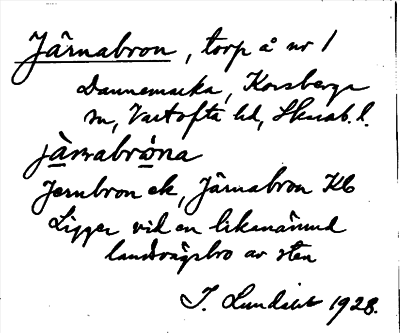 Järnabron, torp å nr 1
Dannemarka, Korsberga
sn, Vartofta hd, Skarab. l.
jä̀rnabrṓna
Jernbron ek, Järnabron Kb
Ligger vid en likanämnd
landsvägsbro av sten
J. Lundahl 1928.